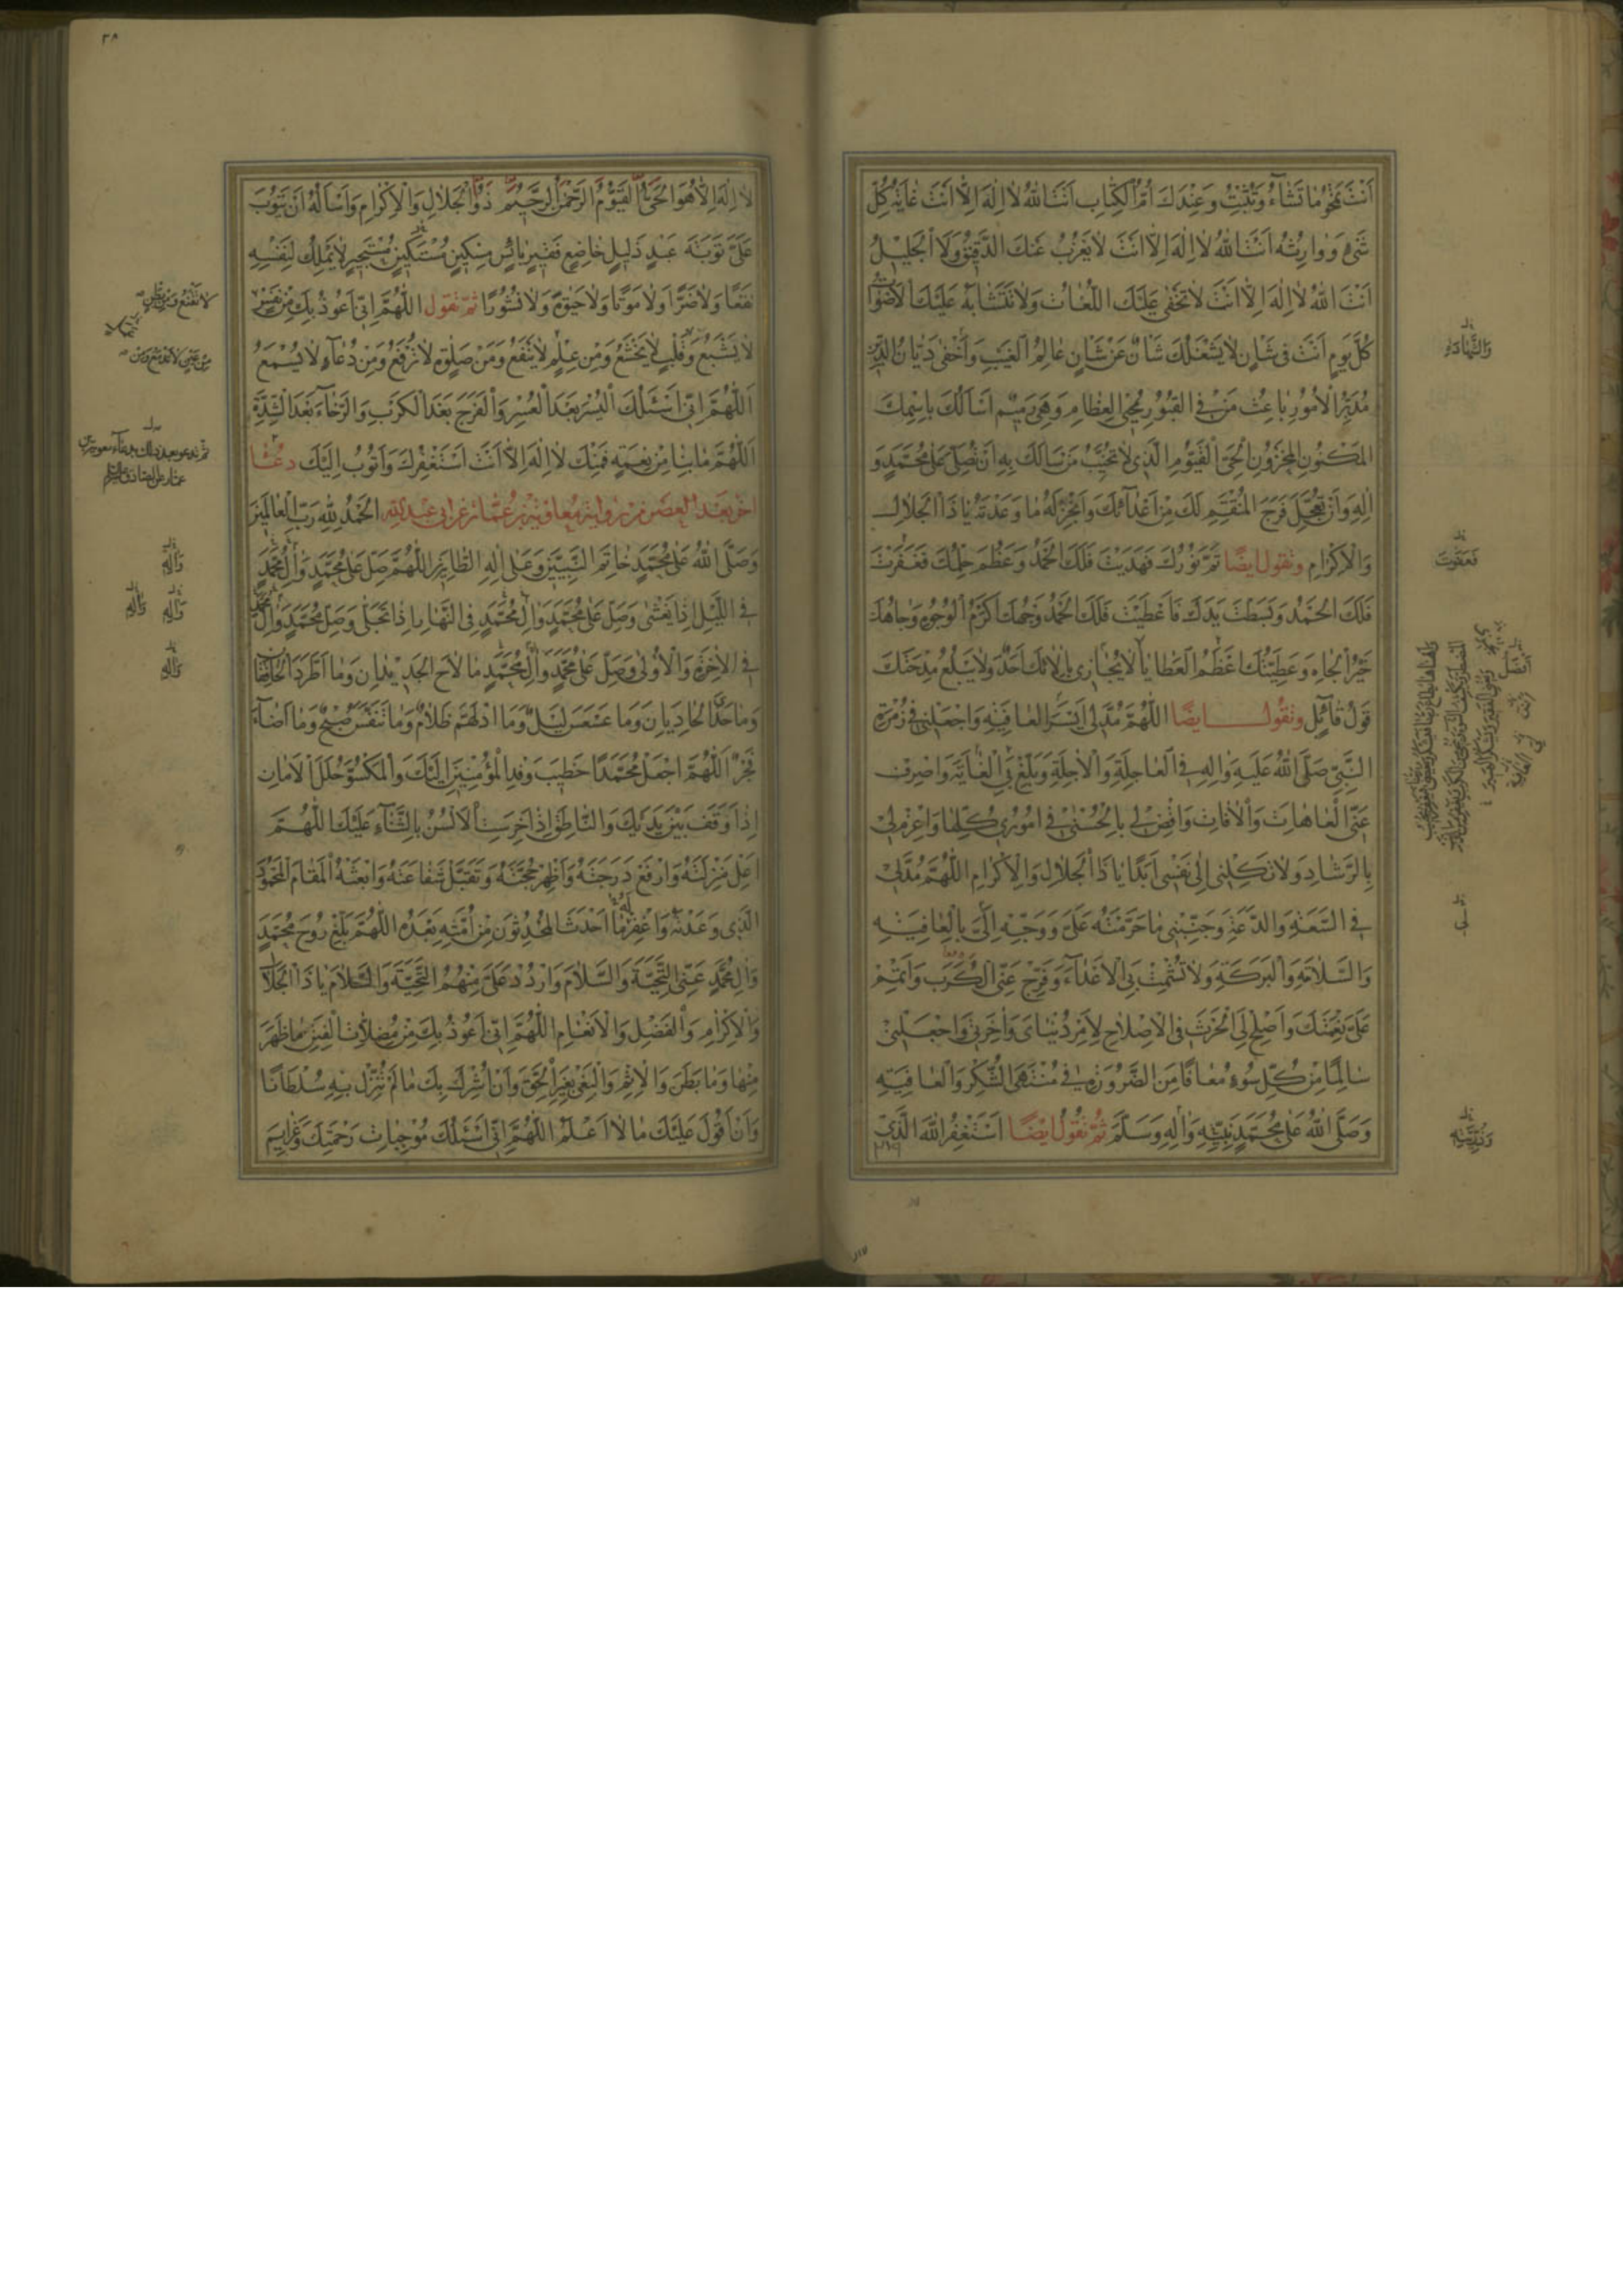 اَنْتَ تَمْحُو مَا تَشَاءُ وَتُثْبِتُ وَعِنْدَكَ اُمُّ الْكِتَابِ اَنْتَ اللهُ لا اِلٰهَ اِلّا اَنْتَ غايَةُ كُلِّ
شَيْءٍ وَوارِثُهُ اَنْتَ اللهُ لا اِلٰهَ اِلّا اَنْتَ لا يَعْزُبُ عَنْكَ الدَّقيقُ وَلَا الْجَليلُ
اَنْتَ اللهُ لا اِلٰهَ اِلّا اَنْتَ لا تَخْفى عَلَيْكَ اللُّغاتُ وَلا تَتَشابَهُ عَلَيْكَ الْاَصْواتُ
كُلَّ يَوْمٍ اَنْتَ في شَاْنٍ لا يَشْغَلُكَ شَاْنٌ عَنْ شَاْنٍ عالِمُ الْغَيْبِ وَاَخْفى دَيّانُ الدّينِ
مُدَبِّرُ الْاُمُورِ باعِثُ مَنْ فِي الْقُبُورِ مُحْيِي الْعِظامِ وَهِيَ رَميمٌ اَسْاَلُكَ بِاسْمِكَ
الْمَكْنُونِ الْمَخْزُونِ الْحَيِّ الْقَيُّومِ الَّذي لا تُخَيِّبُ مَنْ سَاَلَكَ بِهِ اَنْ تُصَلِّيَ عَلى مُحَمَّدٍ وَ
الِهِ وَاَنْ تُعَجِّلَ فَرَجَ الْمُنْتَقِمِ لَكَ مِنْ اَعْدائِكَ وَاَنْجِزْ لَهُ ما وَعَدْتَهُ يا ذَا الْجَلالِ
وَالْاِكْرامِ وتقول ايضًا تَمَّ نُورُكَ فَهَدَيْتَ فَلَكَ الْحَمْدُ وَعَظُمَ حِلْمُكَ فَغَفَرْتَ
فَلَكَ الْحَمْدُ وَبَسَطْتَ يَدَكَ فَاَعْطَيْتَ فَلَكَ الْحَمْدُ وَجْهُكَ اَكْرَمُ الْوُجُوهِ وَجاهُكَ
خَيْرُ الْجاهِ وَعَطِيَّتُكَ اَعْظَمُ الْعَطايا لا يُجازي بِالائِكَ اَحَدٌ وَلا يَبْلُغُ مِدْحَتَكَ
قَوْلُ قائِلٍ وتقول ايضًا اللّٰهُمَّ مُدَّ لي اَيْسَرَ الْعافِيَةِ وَاجْعَلْني في زُمْرَةِ
النَّبِيِّ صَلَّى اللهُ عَلَيْهِ وَالِهِ فِي الْعاجِلَةِ وَالْاجِلَةِ وَبَلِّغْ بِيَ الْغايَةَ وَاصْرِفْ
عَنِّي الْعاهاتِ وَالْافاتِ وَاقْضِ لي بِالْحُسْنى في اُمُوري كُلِّها وَاعْزِمْ لي
بِالرَّشادِ وَلا تَكِلْني اِلى نَفْسي اَبَدًا يا ذَا الْجَلالِ وَالْاِكْرامِ اللّٰهُمَّ مُدَّ لي
فِي السَّعَةِ وَالدَّعَةِ وَجَنِّبْني ما حَرَّمْتَهُ عَلَيَّ وَوَجِّهْ اِلَيَّ بِالْعافِيَةِ
وَالسَّلامَةِ وَالْبَرَكَةِ وَلا تُشْمِتْ بِيَ الْاَعْداءَ وَفَرِّجْ عَنِّي الْكُرَبَ وَاَتْمِمْ
عَلَيَّ نِعْمَتَكَ وَاَصْلِحْ لِيَ الْحَرْثَ فِي الْاِصْلاحِ لِاَمْرِ دُنْيايَ وَاخِرَتي وَاجْعَلْني
سالِمًا مِنْ كُلِّ سُوءٍ مُعافًا مِنَ الضَّرُورَةِ في مُنْتَهَى الشُّكْرِ وَالْعافِيَةِ
وَصَلَّى اللهُ عَلى مُحَمَّدٍ نَبِيِّهِ وَالِهِ وَسَلَّمَ ثمّ تقول ايضًا اَسْتَغْفِرُ اللهَ الَّذي
وَالشَّهادَةِ
فَعَفَوْتَ
بي
٣٨
لا اِلٰهَ اِلّا هُوَ الْحَيُّ الْقَيُّومُ الرَّحْمٰنُ الرَّحيمُ ذُو الْجَلالِ وَالْاِكْرامِ وَاَسْاَلُهُ اَنْ يَتُوبَ
عَلَيَّ تَوْبَةَ عَبْدٍ ذَليلٍ خاضِعٍ فَقيرٍ بائِسٍ مِسْكينٍ مُسْتَكينٍ مُسْتَجيرٍ لا يَمْلِكُ لِنَفْسِهِ
نَفْعًا وَلا ضَرًّا وَلا مَوْتًا وَلا حَيٰوةً وَلا نُشُورًا ثمّ تقول اللّٰهُمَّ اِنّي اَعُوذُ بِكَ مِنْ نَفْسٍ
لا يَشْبَعُ وَقَلْبٍ لا يَخْشَعُ وَمِنْ عِلْمٍ لا يَنْفَعُ وَمِنْ صَلٰوةٍ لا تُرْفَعُ وَمِنْ دُعاءٍ لا يُسْمَعُ
اَللّٰهُمَّ اِنّي اَسْئَلُكَ الْيُسْرَ بَعْدَ الْعُسْرِ وَالْفَرَجَ بَعْدَ الْكَرْبِ وَالرَّخاءَ بَعْدَ الشِّدَّةِ
اَللّٰهُمَّ ما بِنا مِنْ نِعْمَةٍ فَمِنْكَ لا اِلٰهَ اِلّا اَنْتَ اَسْتَغْفِرُكَ وَاَتُوبُ اِلَيْكَ دعاء
اخر بعد العصر من رواية معاوية بن عمّار عن ابي عبد الله الْحَمْدُ لِلّٰهِ رَبِّ الْعالَمينَ
وَصَلَّى اللهُ عَلى مُحَمَّدٍ خاتَمِ النَّبِيّينَ وَعَلى الِهِ الطّاهِرينَ اللّٰهُمَّ صَلِّ عَلى مُحَمَّدٍ وَالِ مُحَمَّدٍ
فِي اللَّيْلِ اِذا يَغْشى وَصَلِّ عَلى مُحَمَّدٍ وَالِ مُحَمَّدٍ فِي النَّهارِ اِذا تَجَلّى وَصَلِّ مُحَمَّدٍ وَالِ مُحَمَّدٍ
فِي الْاخِرَةِ وَالْاُولى وَصَلِّ عَلى مُحَمَّدٍ وَالِ مُحَمَّدٍ ما لاحَ الْجَديدانِ وَمَا اطَّرَدَ الْخافِقانِ
وَما حَدَا الْحادِيانِ وَما عَسْعَسَ لَيْلٌ وَمَا ادْلَهَمَّ ظَلامٌ وَما تَنَفَّسَ صُبْحٌ وَما اَضاءَ
فَجْرٌ اَللّٰهُمَّ اجْعَلْ مُحَمَّدًا خَطيبَ وَفْدِ الْمُؤْمِنينَ اِلَيْكَ وَالْمَكْسُوَّ حُلَلَ الْاَمانِ
اِذا وَقَفَ بَيْنَ يَدَيْكَ وَالنّاطِقَ اِذا خَرِسَتِ الْاَلْسُنُ بِالثَّناءِ عَلَيْكَ اللّٰهُمَّ
اَعْلِ مَنْزِلَتَهُ وَارْفَعْ دَرَجَتَهُ وَاَظْهِرْ حُجَّتَهُ وَتَقَبَّلْ شَفاعَتَهُ وَابْعَثْهُ الْمَقامَ الْمَحْمُودَ
الَّذي وَعَدْتَهُ وَاغْفِرْ لَهُ ما اَحْدَثَ الْمُحْدِثُونَ مِنْ اُمَّتِهِ بَعْدَهُ اللّٰهُمَّ بَلِّغْ رُوحَ مُحَمَّدٍ
وَالِ مُحَمَّدٍ عَنِّي التَّحِيَّةَ وَالسَّلامَ وَارْدُدْ عَلَيَّ مِنْهُمُ التَّحِيَّةَ وَالسَّلامَ يا ذَا الْجَلالِ
وَالْاِكْرامِ وَالْفَضْلِ وَالْاِنْعامِ اللّٰهُمَّ اِنّي اَعُوذُ بِكَ مِنْ مُضِلّاتِ الْفِتَنِ ما ظَهَرَ
مِنْها وَما بَطَنَ وَالْاِثْمِ وَالْبَغْيِ بِغَيْرِ الْحَقِّ وَاَنْ اُشْرِكَ بِكَ ما لَمْ تُنَزِّلْ بِهِ سُلْطانًا
وَاَنْ اَقُولَ عَلَيْكَ ما لا اَعْلَمُ اللّٰهُمَّ اِنّي اَسْئَلُكَ مُوجِباتِ رَحْمَتِكَ وَعَزائِمَ
وَالِهِ
وَالِهِ وَالِهِ
وَالِهِ